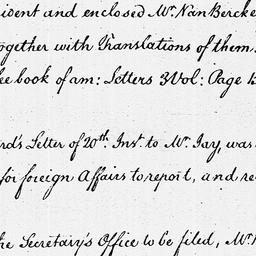 ident and enclosed Mr. Van Bercke
ogether with Translations of them
ee book of am: Letters 3 Vol: Page 1
rd's Letter of 20th. Inst. to Mr. Jay, was
for foreign Affairs to report, and re
he Secretary's Office to be filed, Mr.